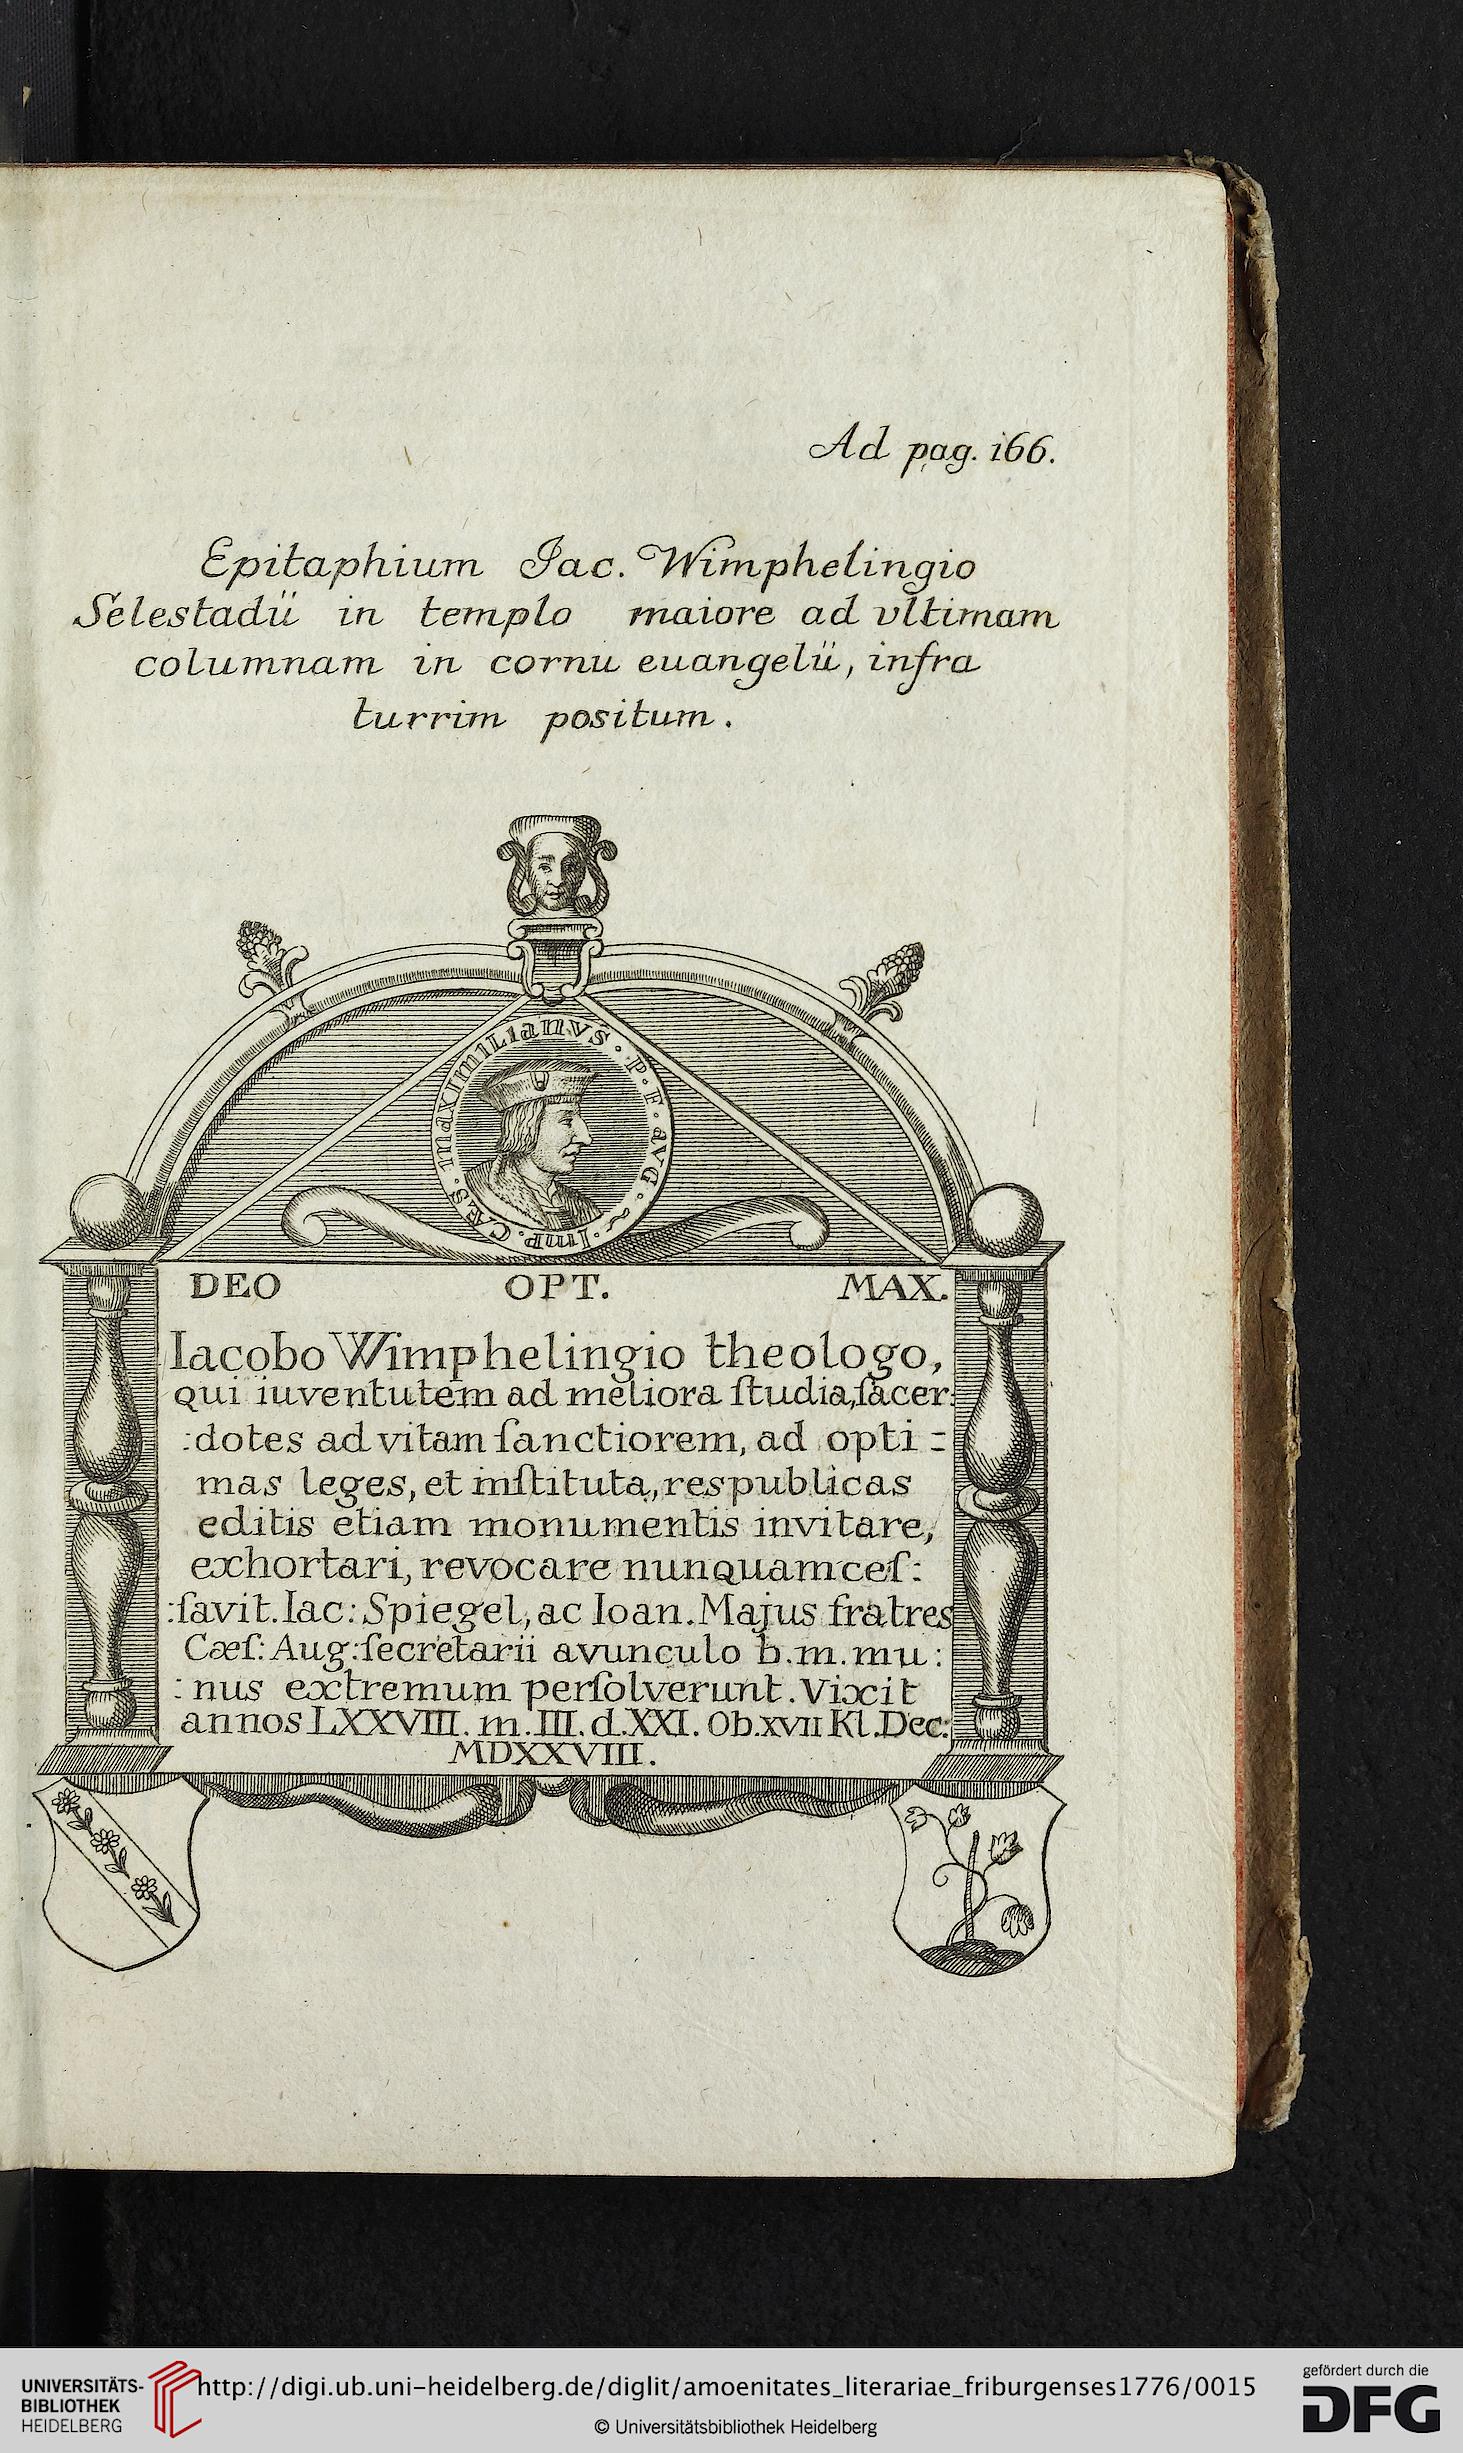 Ad pag. i66.
Epitaphium Iac. Wimphelingio
Selestadii in templo maiore ad vltimam
columnam in cornu euangelii, infra
turrim positum.
IMP. CÆS. MAXIMILIANVS. P. F. AVG.
DEO OPT. MAX.
Iacobo Wimphelingio theologo,
qui iuventutem ad meliora ſtudia, ſacer:
:dotes ad vitam ſanctiorem, ad opti =
mas leges, et inſtituta, respublicas
editis etiam monumentis invitare,
exhortari, revocare nunquam ceſ:
:ſavit. Iac: Spiegel, ac Ioan. Majus fratres
Cæſ: Aug: ſecretarii avunculo b. m. mu:
:nus extremum perſolverunt. Vixit
annos LXXVIII. m. III. d. XXI. Ob. XVII Kl. Dec:
MDXXVIII.
UNIVERSITÄTS-
BIBLIOTHEK
HEIDELBERG
http://digi.ub.uni-heidelberg.de/diglit/amoenitates_literariae_friburgenses1776/0015
© Universitätsbibliothek Heidelberg
gefördert durch die
DFG